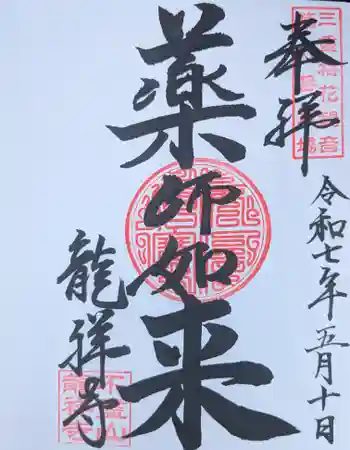 奉拝
令和七年五月十日
薬師如来
龍祥寺